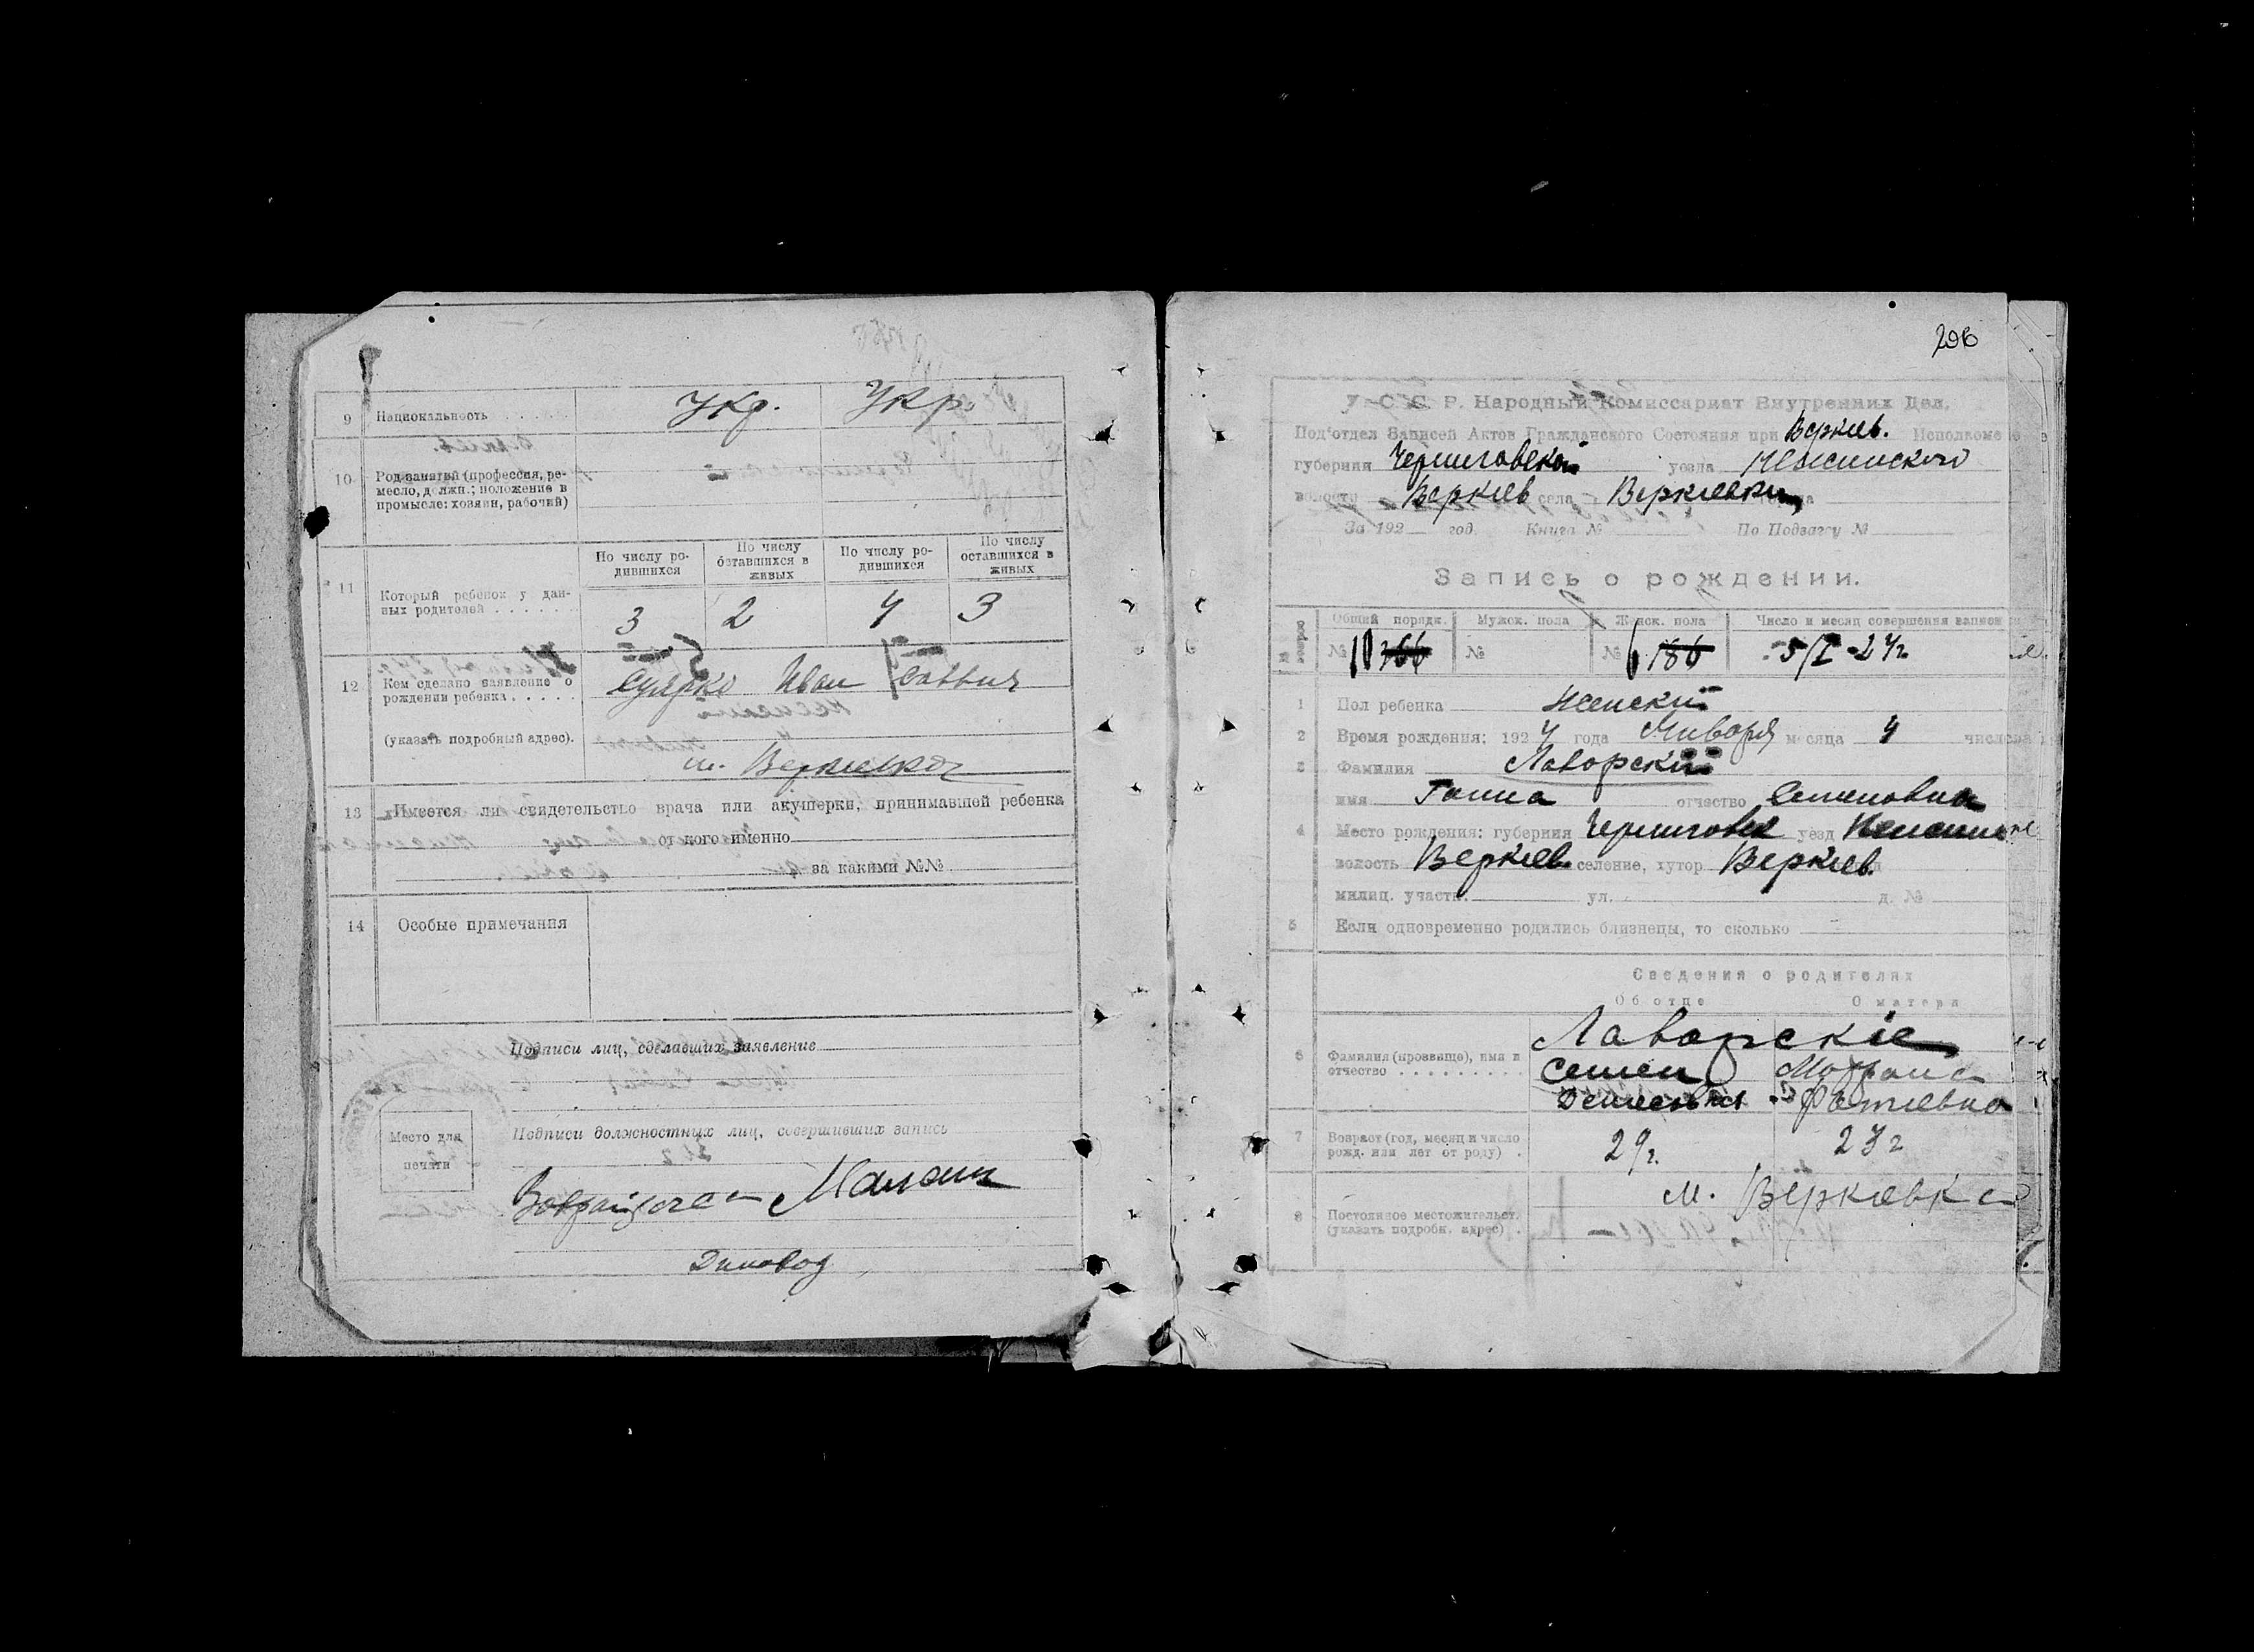 9 Национальность Укр. Укр.
10 Род занятий (профессия, ре-
месло, должн.; положение в
промысле: хозяин, рабочий)
По числу ро-
дившихся
По числу
оставшихся в
живых
По числу ро-
дившихся
По числу
оставшихся в
живых
11 Который ребенок у дан-
ных родителей
3 2 4 3
12 Кем сделано заявление о
рождении ребенка
Иван Саввич
(указать подробный адрес).
м. Веркиевка
13 Имеется ли свидетельство врача или акушерки, принимавшей ребенка
от кого именно
за какими №№
14 Особые примечания
Подписи лиц, сделавших заявление
Место для
печати
Подписи должностных лиц, совершивших запись
296
У. С. С. Р. Народный Комиссариат Внутренних Дел.
Под'отдел Записей Актов Гражданского Состояния при Веркиев. Исполкоме
губернии Черниговской уезда Нежинского
волости Веркиев села Веркиевки
За 192 год. Книга № По Подзагсу №
Запись о рождении.
Общий порядк. Мужск. пола Женск. пола Число и месяц совершения записи
№ 10 366 № № 6 186 5/I-24г.
1 Пол ребенка женский
2 Время рождения: 1924 года Января месяца 4 числа
3 Фамилия Лаворский
имя Ганна отчество Семеновна
4 Место рождения: губерния Черниговск уезд Нежинск
волость Веркиев. селение, хутор Веркиев.
милиц. участк. ул. д. №
5 Если одновременно родились близнецы, то сколько
Сведения о родителях
Об отце О матери
6 Фамилия (прозвище), имя и
отчество
Лаворскіе
Семен Мотрона
7 Возраст (год, месяц и число
рожд. или лет от роду)
29г. 23г
м. Веркиевка
8 Постоянное местожительст.
(указать подробн. адрес)